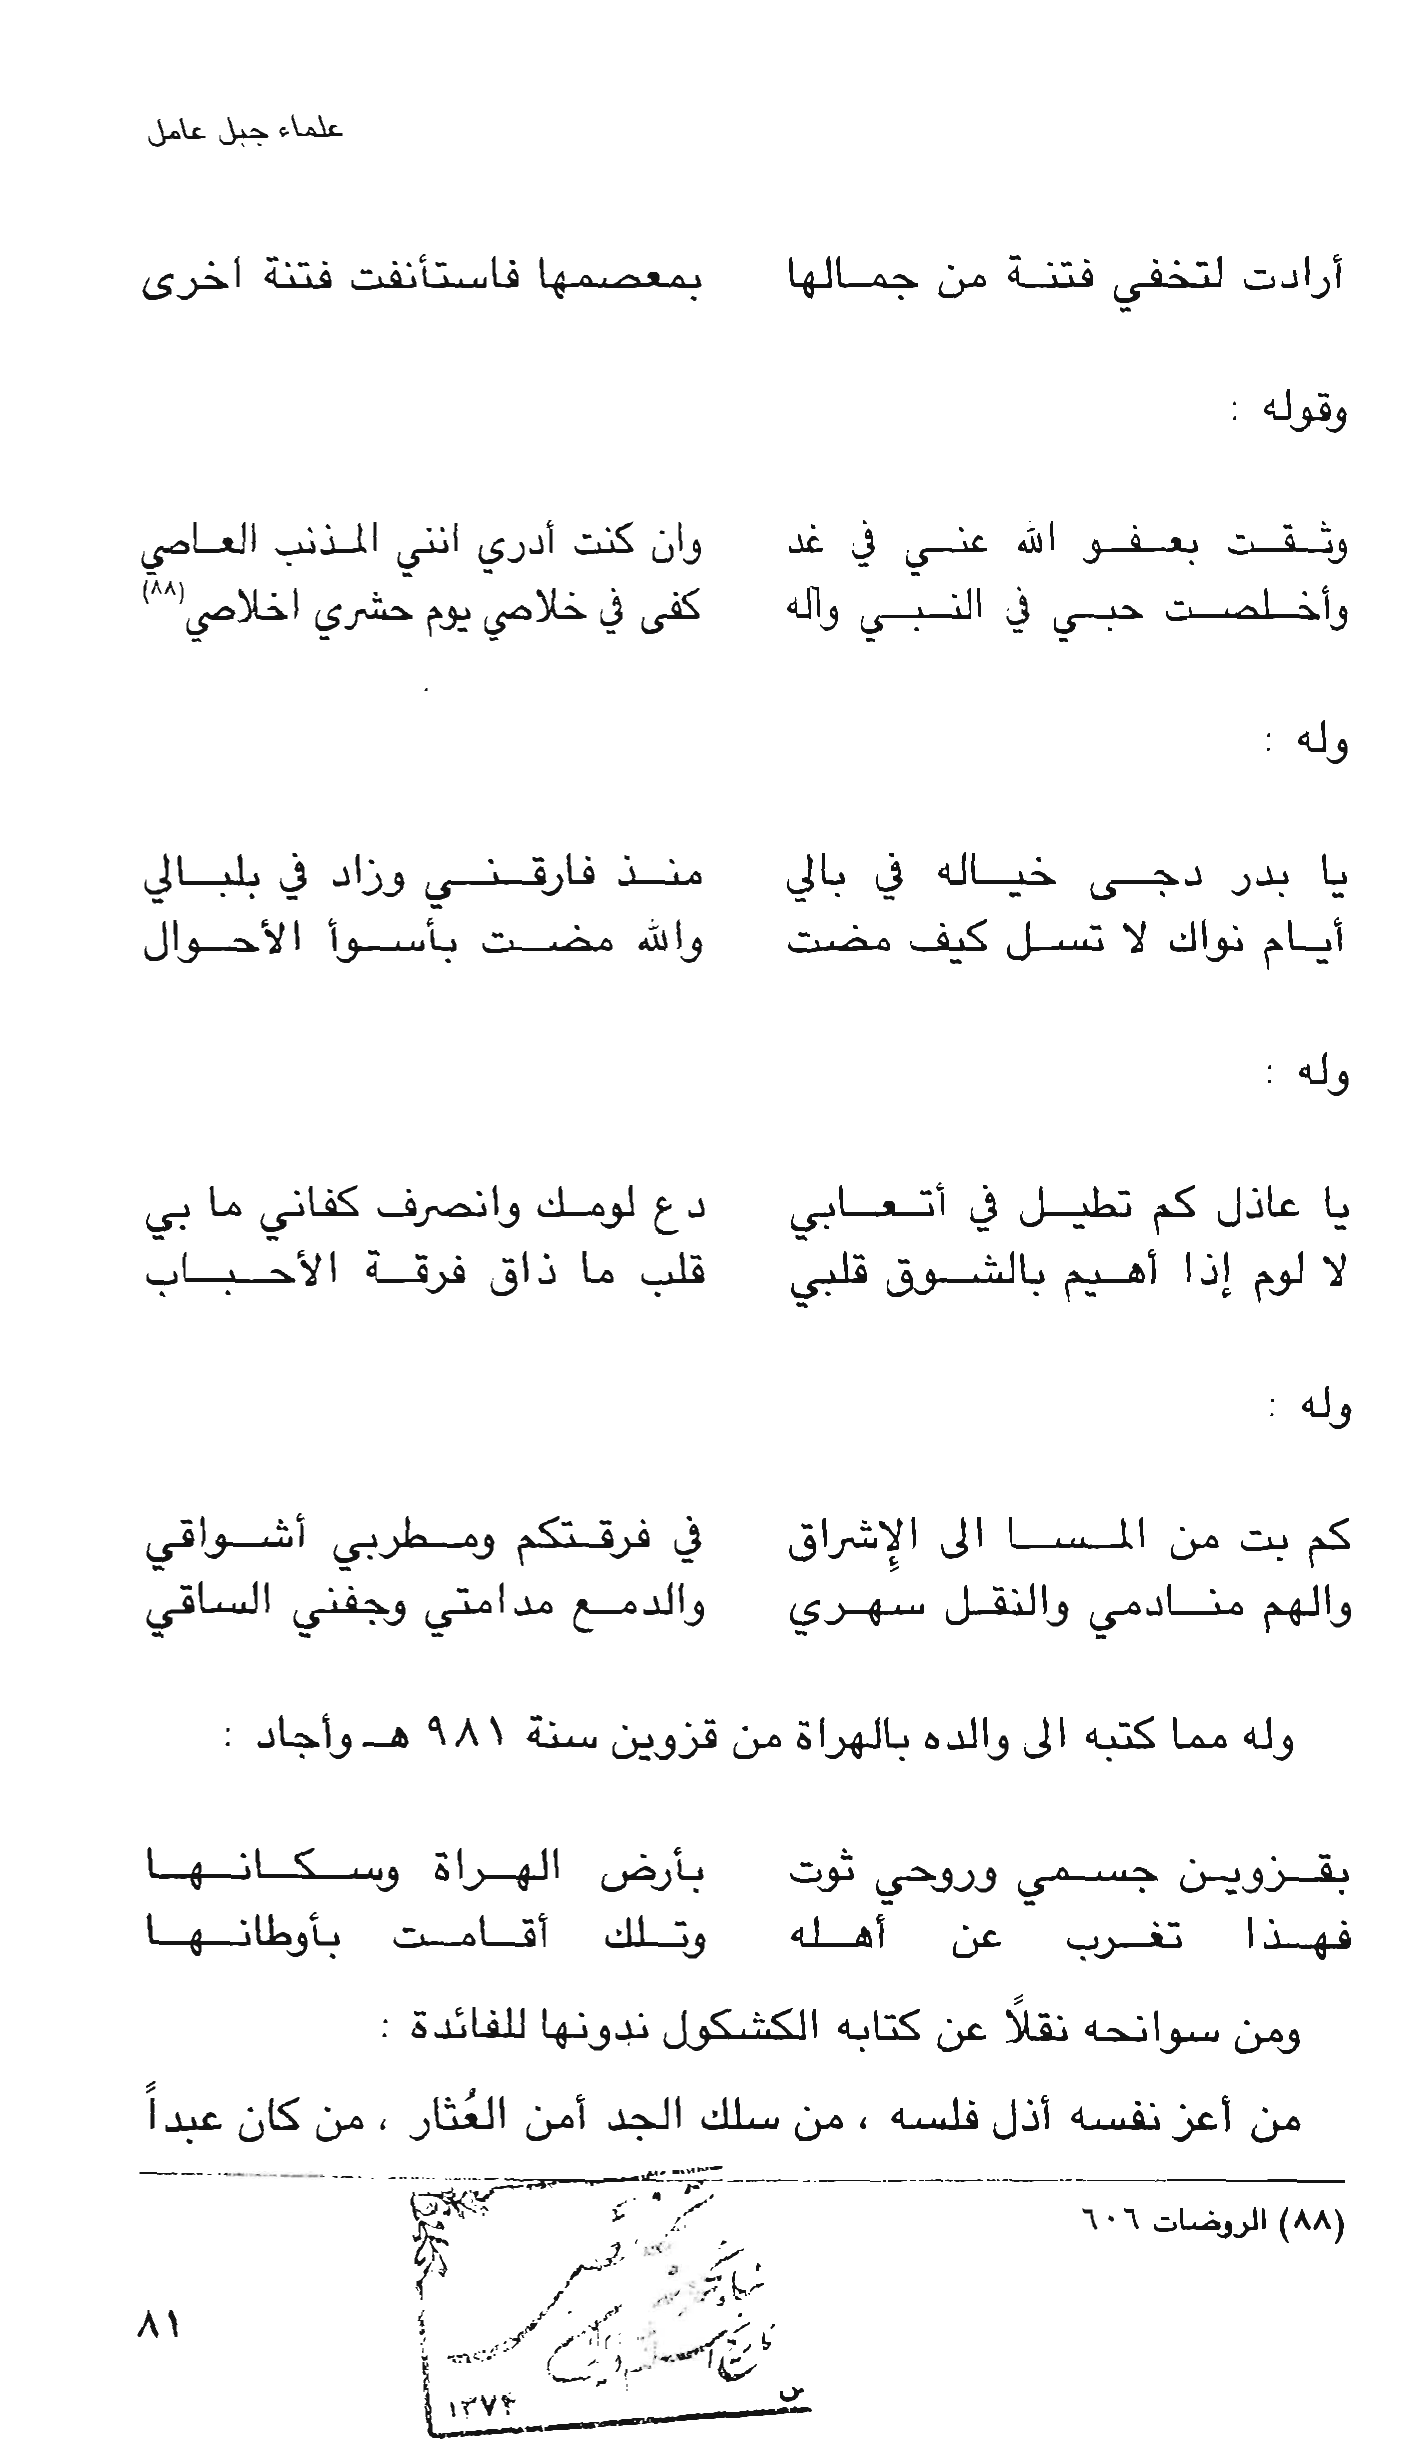 علماء جبل عامل
أرادت لتخفي فتنة من جمالها بمعصمها فاستأنفت فتنة اخرى
وقوله :
وثقت بعفو الله عني في غد وان كنت أدري انني المذنب العاصي
وأخلصت حبي في النبي وآله كفى في خلاصي يوم حشري اخلاصي(٨٨)
وله :
يا بدر دجى خياله في بالي منذ فارقني وزاد في بلبالي
أيام نواك لا تسل كيف مضت والله مضت بأسوأ الأحوال
وله :
يا عاذل كم تطيل في أتعابي دع لومك وانصرف كفاني ما بي
لا لوم إذا أهيم بالشوق قلبي قلب ما ذاق فرقة الأحباب
وله :
كم بت من المسا الى الإشراق في فرقتكم ومطربي أشواقي
والهم منادمي والنقل سهري والدمع مدامتي وجفني الساقي
وله مما كتبه الى والده بالهراة من قزوين سنة ٩٨١ هـ وأجاد :
بقزوين جسمي وروحي ثوت بأرض الهراة وسكانها
فهذا تغرب عن أهله وتلك أقامت بأوطانها
ومن سوانحه نقلاً عن كتابه الكشكول ندونها للفائدة :
من أعز نفسه أذل فلسه ، من سلك الجد أمن العُثار ، من كان عبداً
(٨٨) الروضات ٦٠٦
٨١